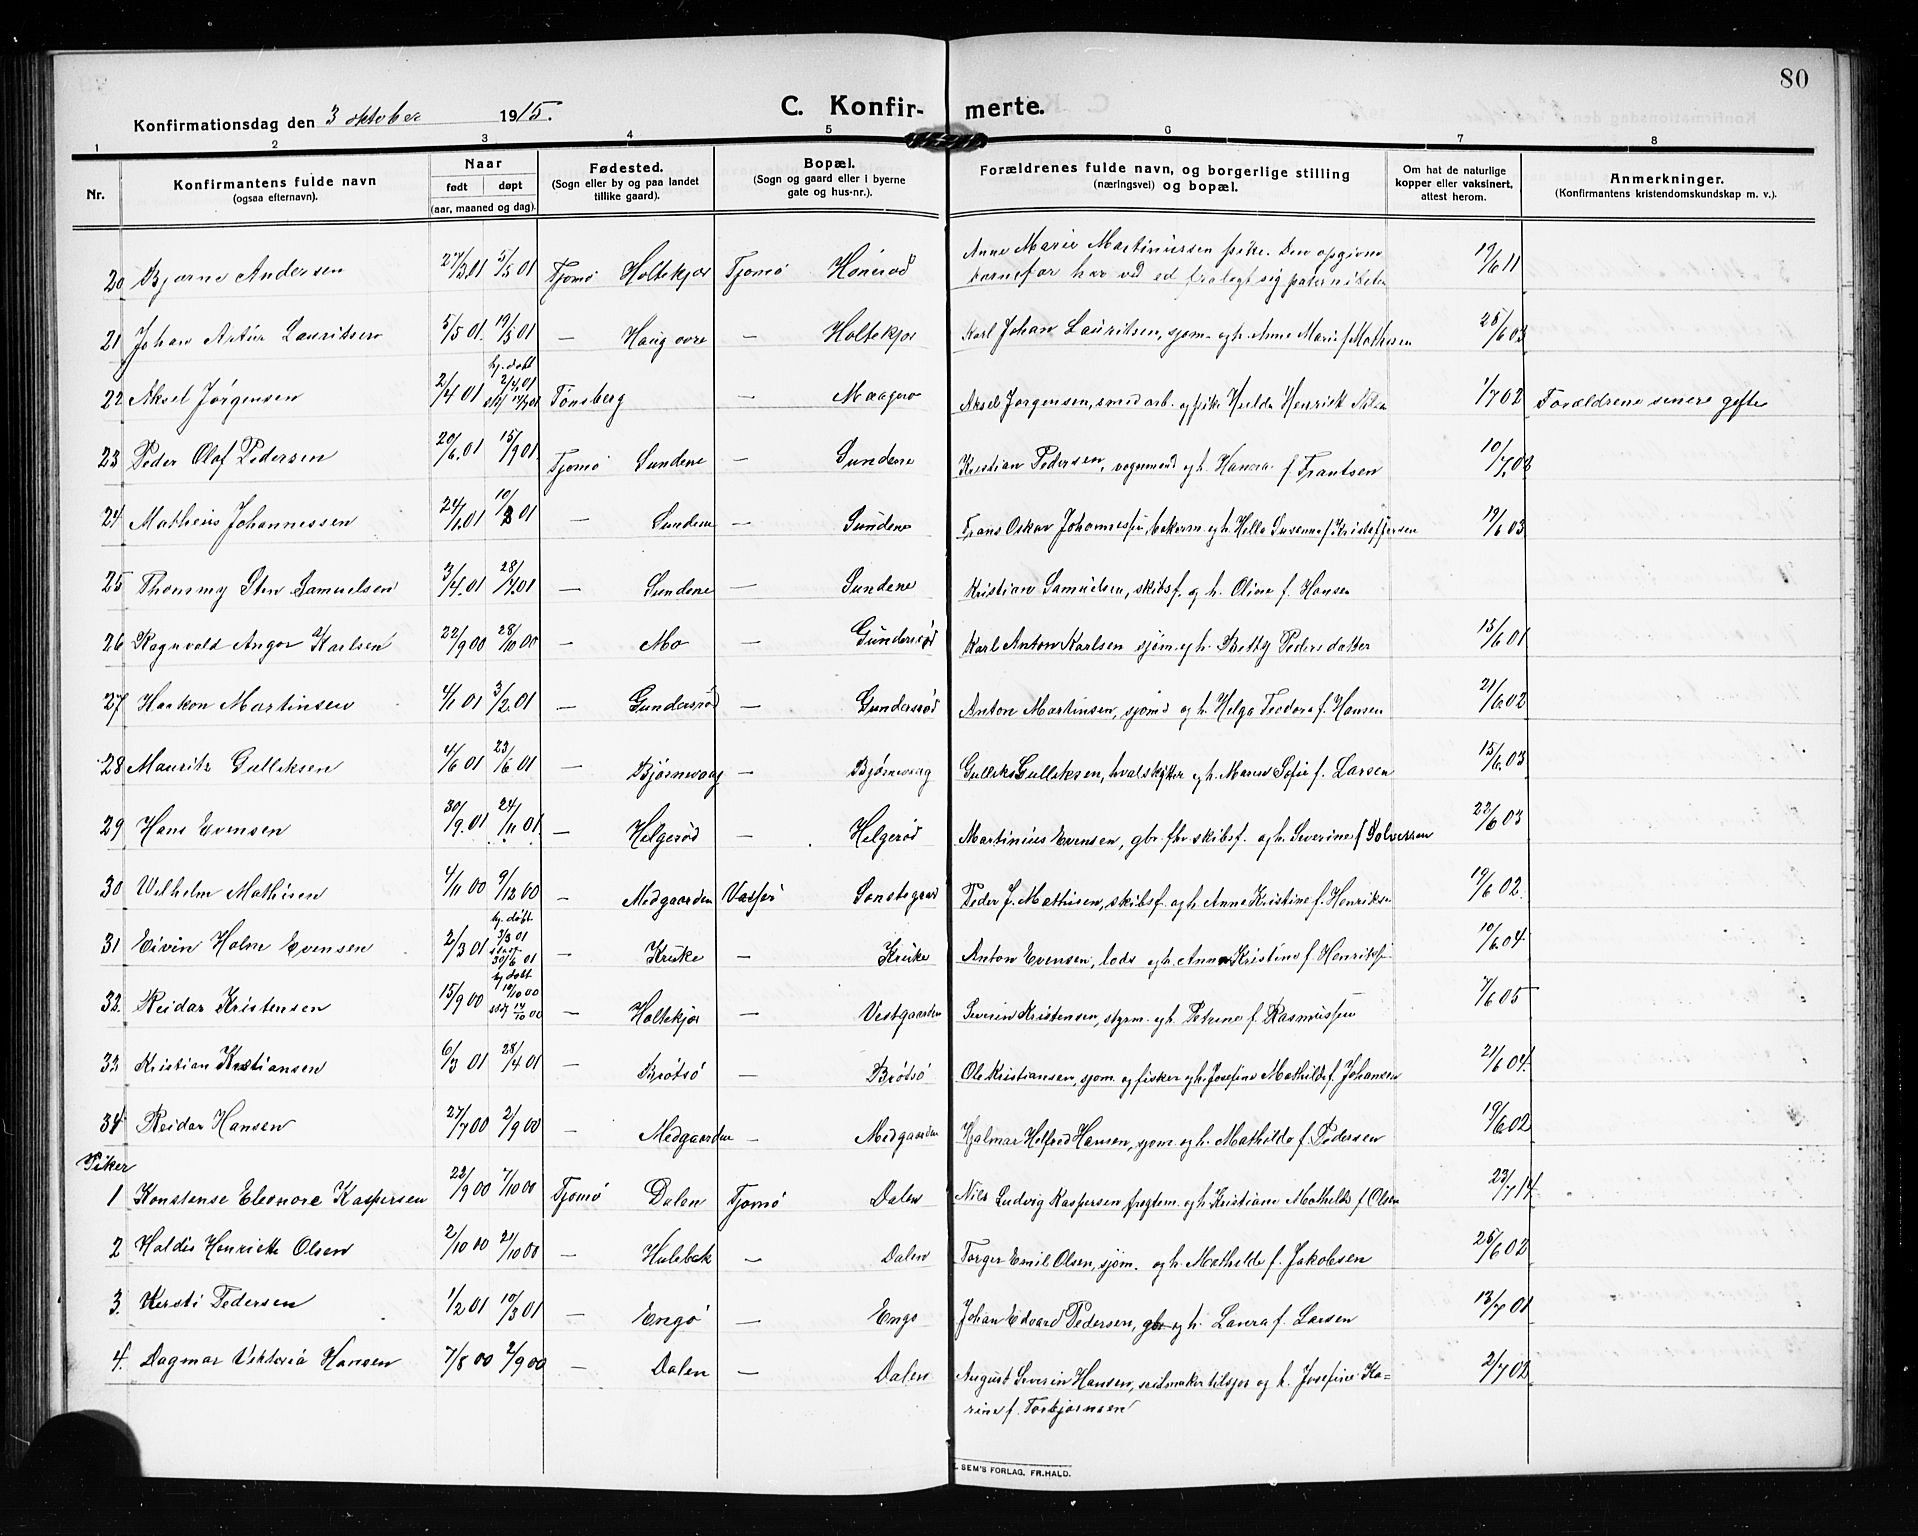 80
Konfirmationsdag den 3 oktober 1915.
C. Konfirmerte.
1 2 3 4 5 6 7 8
Nr. Konfirmantens fulde navn (ogsaa efternavn). Naar født døpt (aar, maaned og dag). Fødested. (Sogn eller by og paa landet tillike gaard). Bopæl. (Sogn og gaard eller i byerne gate og hus-nr.). Forældrenes fulde navn, og borgerlige stilling (næringsvei) og bopæl. Om hat de naturlige kopper eller vaksinert, attest herom. Anmerkninger. (Konfirmantens kristendomskundskap m. v.).
20 Bjarne Andersen 27/3 01 5/5 01 Tjømø Holtekjær Tjomø Hønerød Anne Marie Martinussen pike. Den opgivne barnefar har ved ed fralagt sig paterniteten 19/6 11
21 Johan Artur Lauritsen 5/5 01. 19/5 01 — Haug øvre — Holtekjær Karl Johan Lauritsen, sjøm. og h. Anne Marie f. Mathisen 25/6 03
22 Aksel Jørgensen 2/4 01 hj. døbt 2/4 01 Tønsberg — Maagerø Aksel Jørgensen, smedarb. og pike Hulda Henriette 1/7 02 Forældrene senere gifte
23 Peder Olaf Pedersen 20/6.01 15/9 01 Tjomø Sundene Sundene Kristian Pedersen, vognmand og h. Hanna f. Frantsen 10/7 02
24 Matheus Johannessen 24/1.01 10/3 01 — Sundene — Sundene Frans Oskar Johannessen, bakerm. og h. Helle Susanne f. Kristoffersen 19/6 03
25 Thommy Sten Samuelsen 3/4.01 28/4.01 — Sundene — Sundene Kristian Samuelsen, skibsf. og h. Oline f. Hansen
26 Ragnvald Angor Karlsen 22/9 00 28/10 00 — Mo — Gundersrød Karl Anton Karlsen sjøm. og h. Betty Pedersdatter 15/6 01
27 Haakon Martinsen 4/1 01 3/2.01 — Gundersrød — Gundersrød Anton Martinsen, sjømd og h. Helga Teodora f. Hansen 21/6 02
28 Mauritz Gulliksen 4/6 01 23/6 01 — Bjørnevaag — Bjørnevaag Gullik Gulliksen, hvalskytter og h. Maren Sofie f. Larsen 15/6.03
29 Hans Evensen 30/9.01 24/11 01. — Helgerød — Helgerød Martinius Evensen, gbr. fhv skibsf. og h. Severine f. Tolversen 22/6 03
30 Wilhelm Mathisen 4/11 00 9/12 00 — Medgaarden Vasser Sønstegaard Peder J. Mathisen, skibsf. og h. Anne Kristine f. Henriksen 19/6 02.
31 Eivin Holm Evensen 2/3 01 hj. døbt 3/3 01 stast. 30/6 01 — Kruke — Kruke Anton Evensen, lods og h. Anne Kristine f. Henriksen 10/6.04
32. Reidar Kristensen 15/9 00 hj. døbt 10/10 00 — Holtekjær — Vestgaarden Severin Kristensen, styrm. og h. Petrine f. Rasmussen 7/6 05
33 Kristian Kristiansen 6/3 01 28/4 01 — Brøtsø — Brøtsø Ole Kristiansen, sjøm. og fisker og h. Josefine Mathilde f. Johansen 21/6 04.
34 Reidar Hansen 27/7 00 2/9 00 — Medgaarden — Medgaarden Hjalmar Helfred Hansen, sjøm. og h. Mathilde f. Pedersen 19/6 02
Piker
1 Konstanse Eleonore Kaspersen 22/9 00 7/10 00 Tjomø Dalen Tjomø Dalen Nils Ludvig Kaspersen fragtem. og h. Kristiane Mathilde f. Olsen 23/7 14
2 Haldis Henriette Olsen 2/10 00 21/10 00 — Hulebak — Dalen Torger Emil Olsen, sjøm. og h. Mathilde f. Jakobsen 25/6 02
3. Kersti Pedersen 1/2 01 10/3 01 — Engø — Engø Johan Edvard Pedersen, gbr og h. Laura f. Larsen 13/7 01
4. Dagmar Viktoria Hansen 7/8 00 2/9 00 — Dalen — Dalen August Severin Hansen, seilmaker tilsjøs og h. Josefine Ka-
rine f. Torbjørnsen 2/7 02
SEM'S FORLAG, FR.HALD.